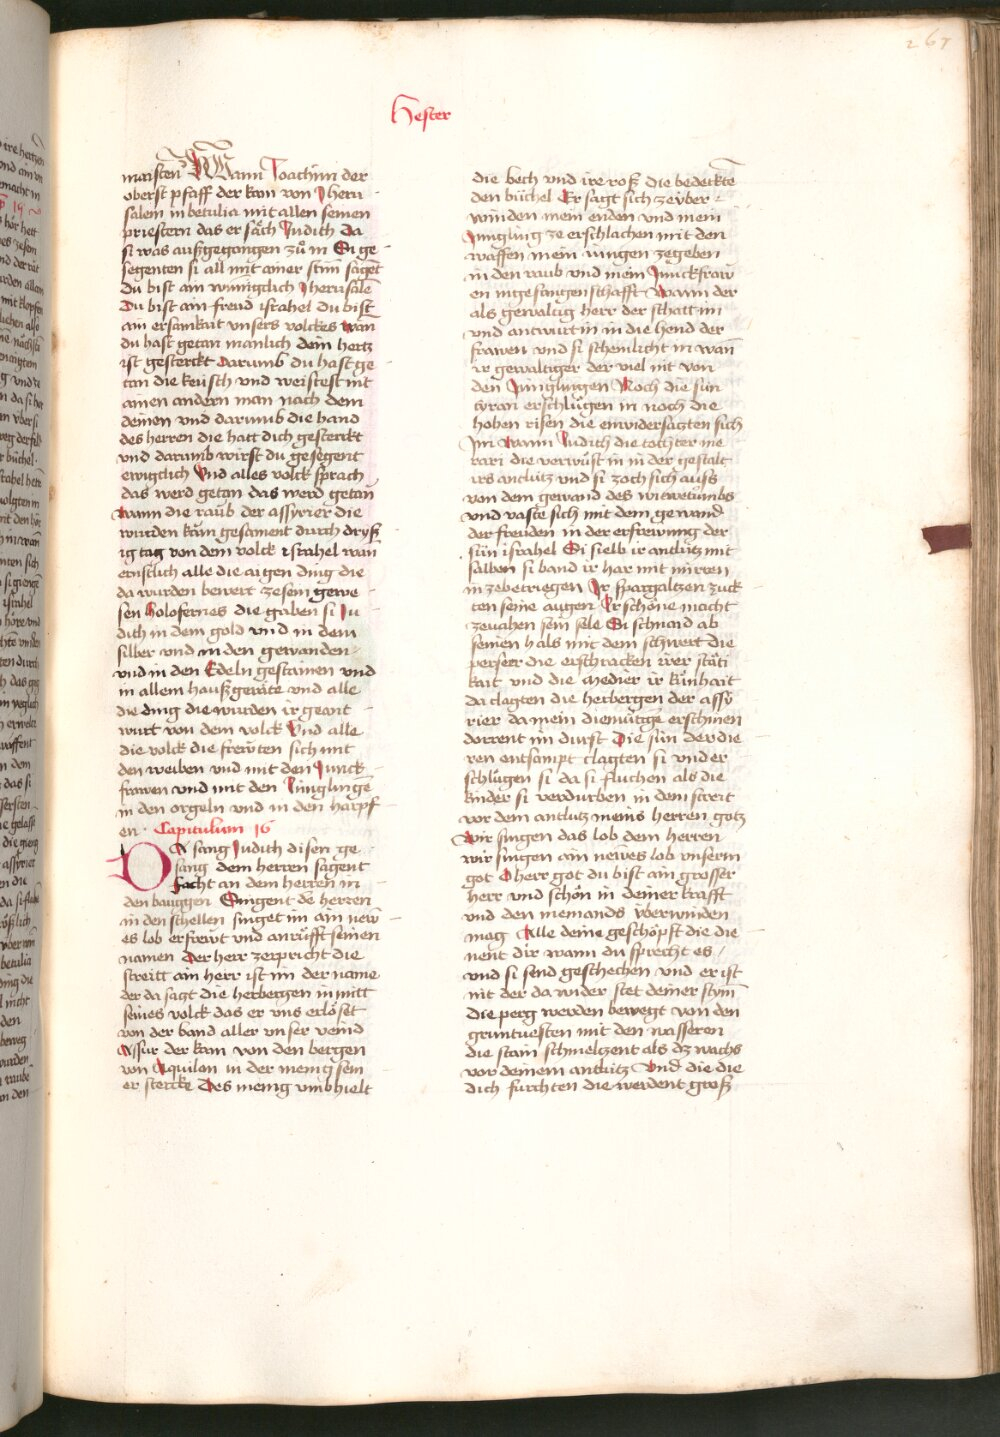 267
Hester
maisten Wann Joachim der
oberst pfaff der kam von Jheru
salem in betulia mit allen seinen
priestern das er säch Judith Da
si was außgegangen zů in Si ge
segenten si all mit ainer stim sagēt
du bist ain wunigclich Jherusalē
Du bist ain freud israhel du bist
ain ersamkait vnsers volckes wan
du hast getan manlich dein hertz
ist gesterckt Darumb du hast ge
tan die keusch vnd weistest nit
ainen andern man nach dem
deinen vnd darumb die hand
des herren die hatt dich gesterckt
vnd darumb wirst du gesegent
ewigclich Vnd alles volck sprach
das werd getan das werd getan
Wann die raub der assyrier die
wurden kam gesament durch dryß
ig tag von dem volck israhel wan
ernstlich alle die aigen ding die
da wurden bewert ze sein gewe
sen holofernes die gaben si Ju
dich in dem gold vnd in dem
silber vnd in den gewanden
vnd in den Edeln gestainen vnd
in allem haußgeräte vnd alle
die ding die wurden ir geant
wurt von dem volck Vnd alle
die volck die frewten sich mit
den weiben vnd mit den Junck
frowen vnd mit den Jünglingē
in den orgeln vnd in den harpf
en · Capitulum 16
DA sang Judith disen ge
sang dem herren sagent
facht an dem herren in
den bauggen Singent dē herren
in den schellen singet im ain new
es lob erfrewt vnd anrüfft seinen
namen Der herr zerpricht die
streitt ain herr ist im der name
der da sagt die herbergen in mitt
seines volck das er vns erlöset
von der hand aller vnser veind
Assur der kam von den bergen
von Aquilon in der menig sein
er stercke Des menig vmbhielt
die bech vnd ire roß die bedeckte
den büchel Er sagt sich ze über
winden mein enden vnd mein
Jüngling ze erschlachen mit den
waffen mein iungen ze geben
in den raub vnd mein Junckfraw
en in gefangenschafft Wann der
als gewaltig herr der schatt im
vnd antwurt in in die hend der
frawen vnd si schemlicht in wan̄
ir gewaltiger der viel nit von
den Jünglingen Noch die sün
tyran erschlügen in noch die
hohen risen die enwidersatzten sich
Im wann Judith die tochter me
rari die verwüst in in der gestalt
irs antlütz vnd si zoch sich auss
von dem gewand des wiwetůmbs
vnd vaste sich mit dem gewand
der freuden in der erfrewung der
sün israhel Si sielb ir antlütz mit
salben si band ir har mit mitren
in ze betriegen Ir spargaltzen zuck
ten seine augen Ir schöne macht
zeuahen sein sele Si schnaid ab
seinen hals mit dem schwert die
perseer die erschracken irer stäti
kait vnd die medier ir künhait
da clagten die herbergen der assÿ
rier da mein diemütige erschinen
dorrent im durst Die sün der die
ren entsampt clagten si vnd er
schlügen si da si fluchen als die
kinder si verdurben in dem streit
vor dem antlütz meins herren gotz
Wir singen das lob dem herren
wir singen ain newes lob vnserm
got O herr got du bist ain grosser
herr vnd schön in deiner krafft
vnd den niemands vberwinden
mag Alle deine geschöpft die die
nent dir wann du sprecht es /
vnd si send geschechen vnd er ist
nit der da wider stet deiner stym̄
Die perg werden bewegt von den
gruntuesten mit den wasseren
die stain schmeltzent als dz wachs
vor deinem antlütz Vnd die die
dich furchten die werdent groß